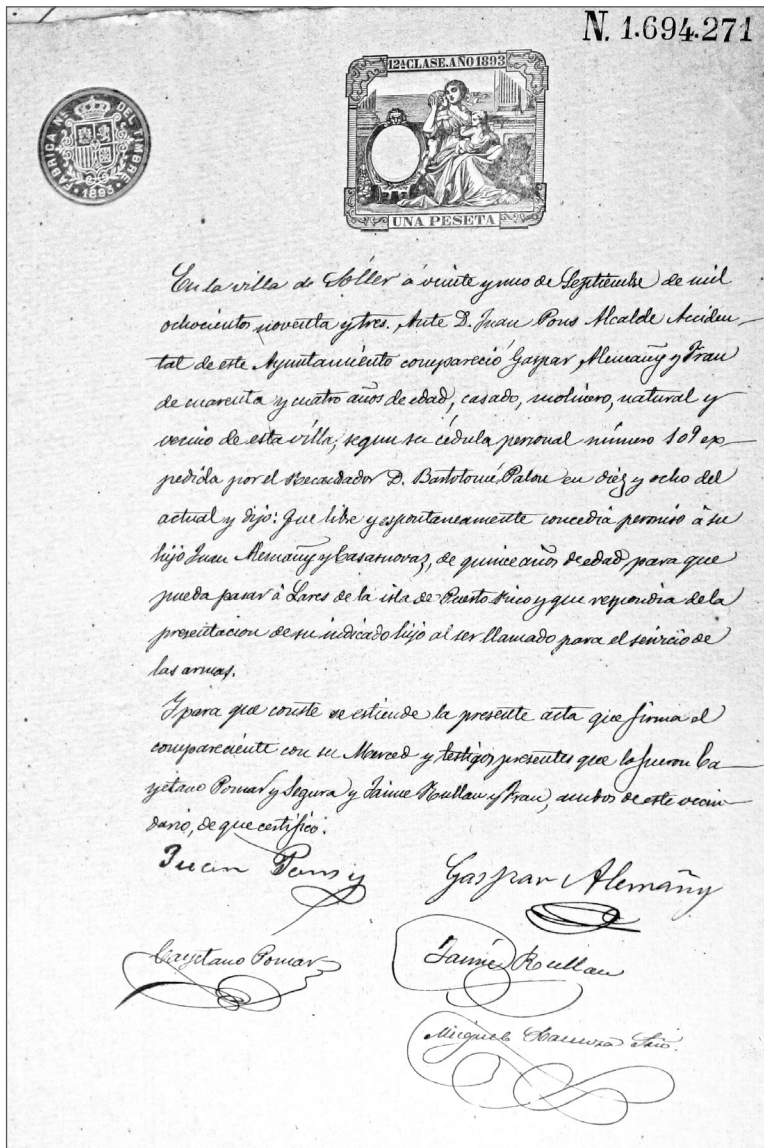 N. 1.694.271
12ª CLASE. AÑO 1893
FABRICA NAL DEL TIMBRE
1893
UNA PESETA
En la villa de Sóller á veinte y uno de Septiembre de mil
ochocientos noventa y tres. Ante D. Juan Pons Alcalde Acciden-
tal de este Ayuntamiento compareció Gaspar Alemañy y Frau
de cuarenta y cuatro años de edad, casado, molinero, natural y
vecino de esta villa, segun su cédula personal número 109 ex-
pedida por el Recaudador D. Bartolomé Palou en diez y ocho del
actual y dijo: Que libre y espontaneamente concedia permiso á su
hijo Juan Alemañy y Casasnovas, de quince años de edad para que
pueda pasar á Lares de la isla de Puerto Rico y que respondia de la
presentacion de su indicado hijo al ser llamado para el servicio de
las armas.
Y para que conste se estiende la presente acta que firma el
compareciente con su Merced y testigos presentes que lo fueron Ca-
yetano Pomar y Segura y Jaime Rullan y Frau, ambos de este vecin-
dario, de que certifico.
Juan Pons y
Gaspar Alemañy
Cayetano Pomar
Jaime Rullan
Miguel Srio.